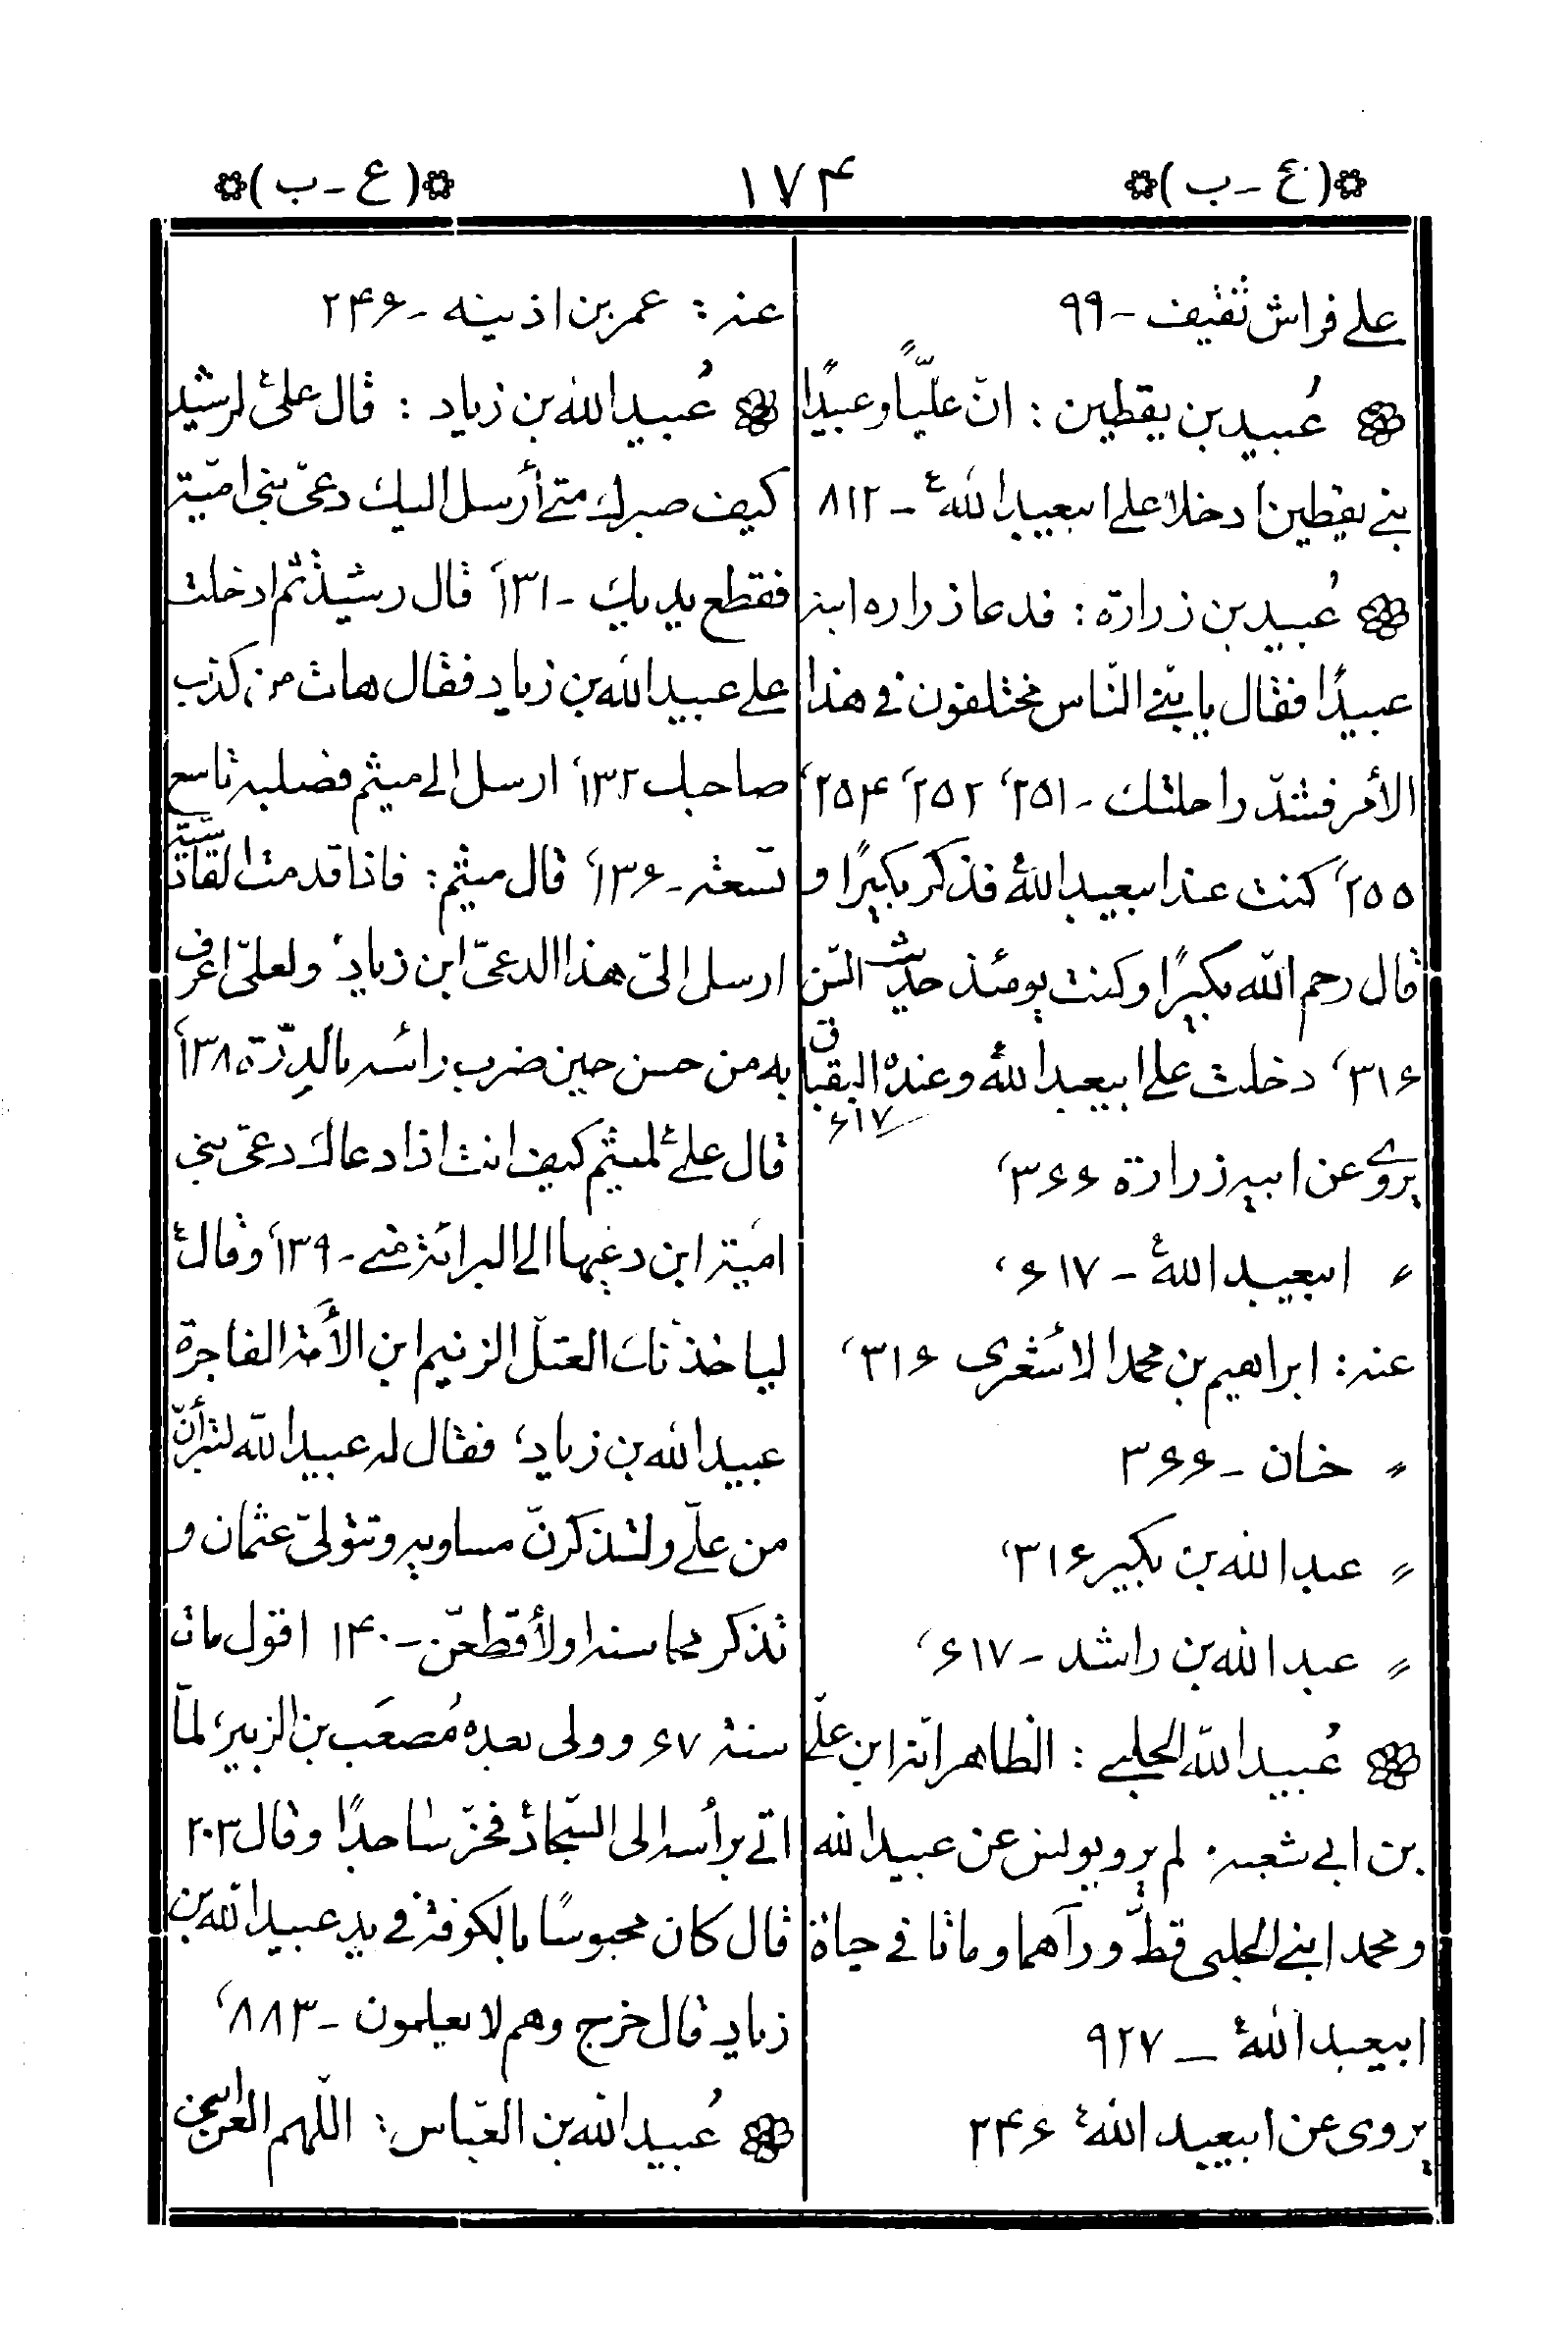 (ع - ب)
۱۷۴
(ع - ب)
على فراش ثقيف - ۹۹
عُبيد بن يقطين : انّ عليّاً وعبيدًا
بنى يقطين ادخلا على ابيعبد اللهؑ - ۸۱۲
عُبيد بن زرارة : فدعا زراره ابنه
عبيدًا فقال يا بنىّ النّاس مختلفون فى هذا
الأمر فشدّ راحلتك - ۲۵۱، ۲۵۲، ۲۵۴،
۲۵۵، كنت عند ابيعبد اللهؑ فذكر بكيرًا و
قال رحم الله بكيرًا وكنت يومئذ حديث السّن
۳۱۶، دخلت على ابيعبد اللهؑ وعنده البقباق
۶۱۷
يروى عن ابيه زرارة ۳۶۶،
〃 ابيعبد اللهؑ - ۶۱۷،
عنه : ابراهيم بن محمد الاشعرى ۳۱۶،
〃 خان - ۳۶۶
〃 عبد الله بن بكير ۳۱۶،
〃 عبد الله بن راشد - ۶۱۷،
عُبيد الله الحلبى : الظاهر انّه ابن علىّ
بن ابى شعبه. لم يرو يونس عن عبيد الله
و محمد ابنى الحلبى قطّ ورآهما وماتا فى حياة
ابيعبد اللهؑ - ۹۲۷
يروى عن ابيعبد اللهؑ ۲۴۶
عنه : عمر بن اذينه - ۲۴۶
عُبيد الله بن زياد : قال علىؑ لرشيد
كيف صبرك متى أرسل اليك دعىّ بنى اميّة
فقطع يديك - ۱۳۱، قال رشيد: ثم ادخلت
على عبيد الله بن زياد فقال هات من كذب
صاحبك ۱۳۲، ارسل الى ميثم فصلبه تاسع
تسعة - ۱۳۶، قال ميثم : فاذا قدمت القادسيّة
ارسل الىّ هذا الدعىّ ابن زياد، ولعلىّ اعرف
به من حسن حين ضرب رأسه بالدِرّة ۱۳۸،
قال علىؑ لميثم كيف انت اذا دعاك دعىّ بنى
اميّة ابن دعيها الى البرائة منى - ۱۳۹، وقالؑ
لياخذنك العتلّ الزنيم ابن الأمة الفاجرة
عبيد الله بن زياد، فقال له عبيد الله لتبرأنّ
من علىّ ولتذكرنّ مساويه وتتولىّ عثمان و
تذكر محاسنه او لأقطعنّ - ۱۴۰ اقول مات
سنة ۶۷ وولى بعده مُصعَب بن الزبير، لمّا
اتى برأسه الى السّجادؑ فخرّ ساجدًا وقال ۲۰۳
قال كان محبوسًا بالكوفة فى يد عبيد الله بن
زياد قال خرج وهم لا يعلمون - ۸۸۳،
عُبيد الله بن العبّاس : اللّهم العن ابنى